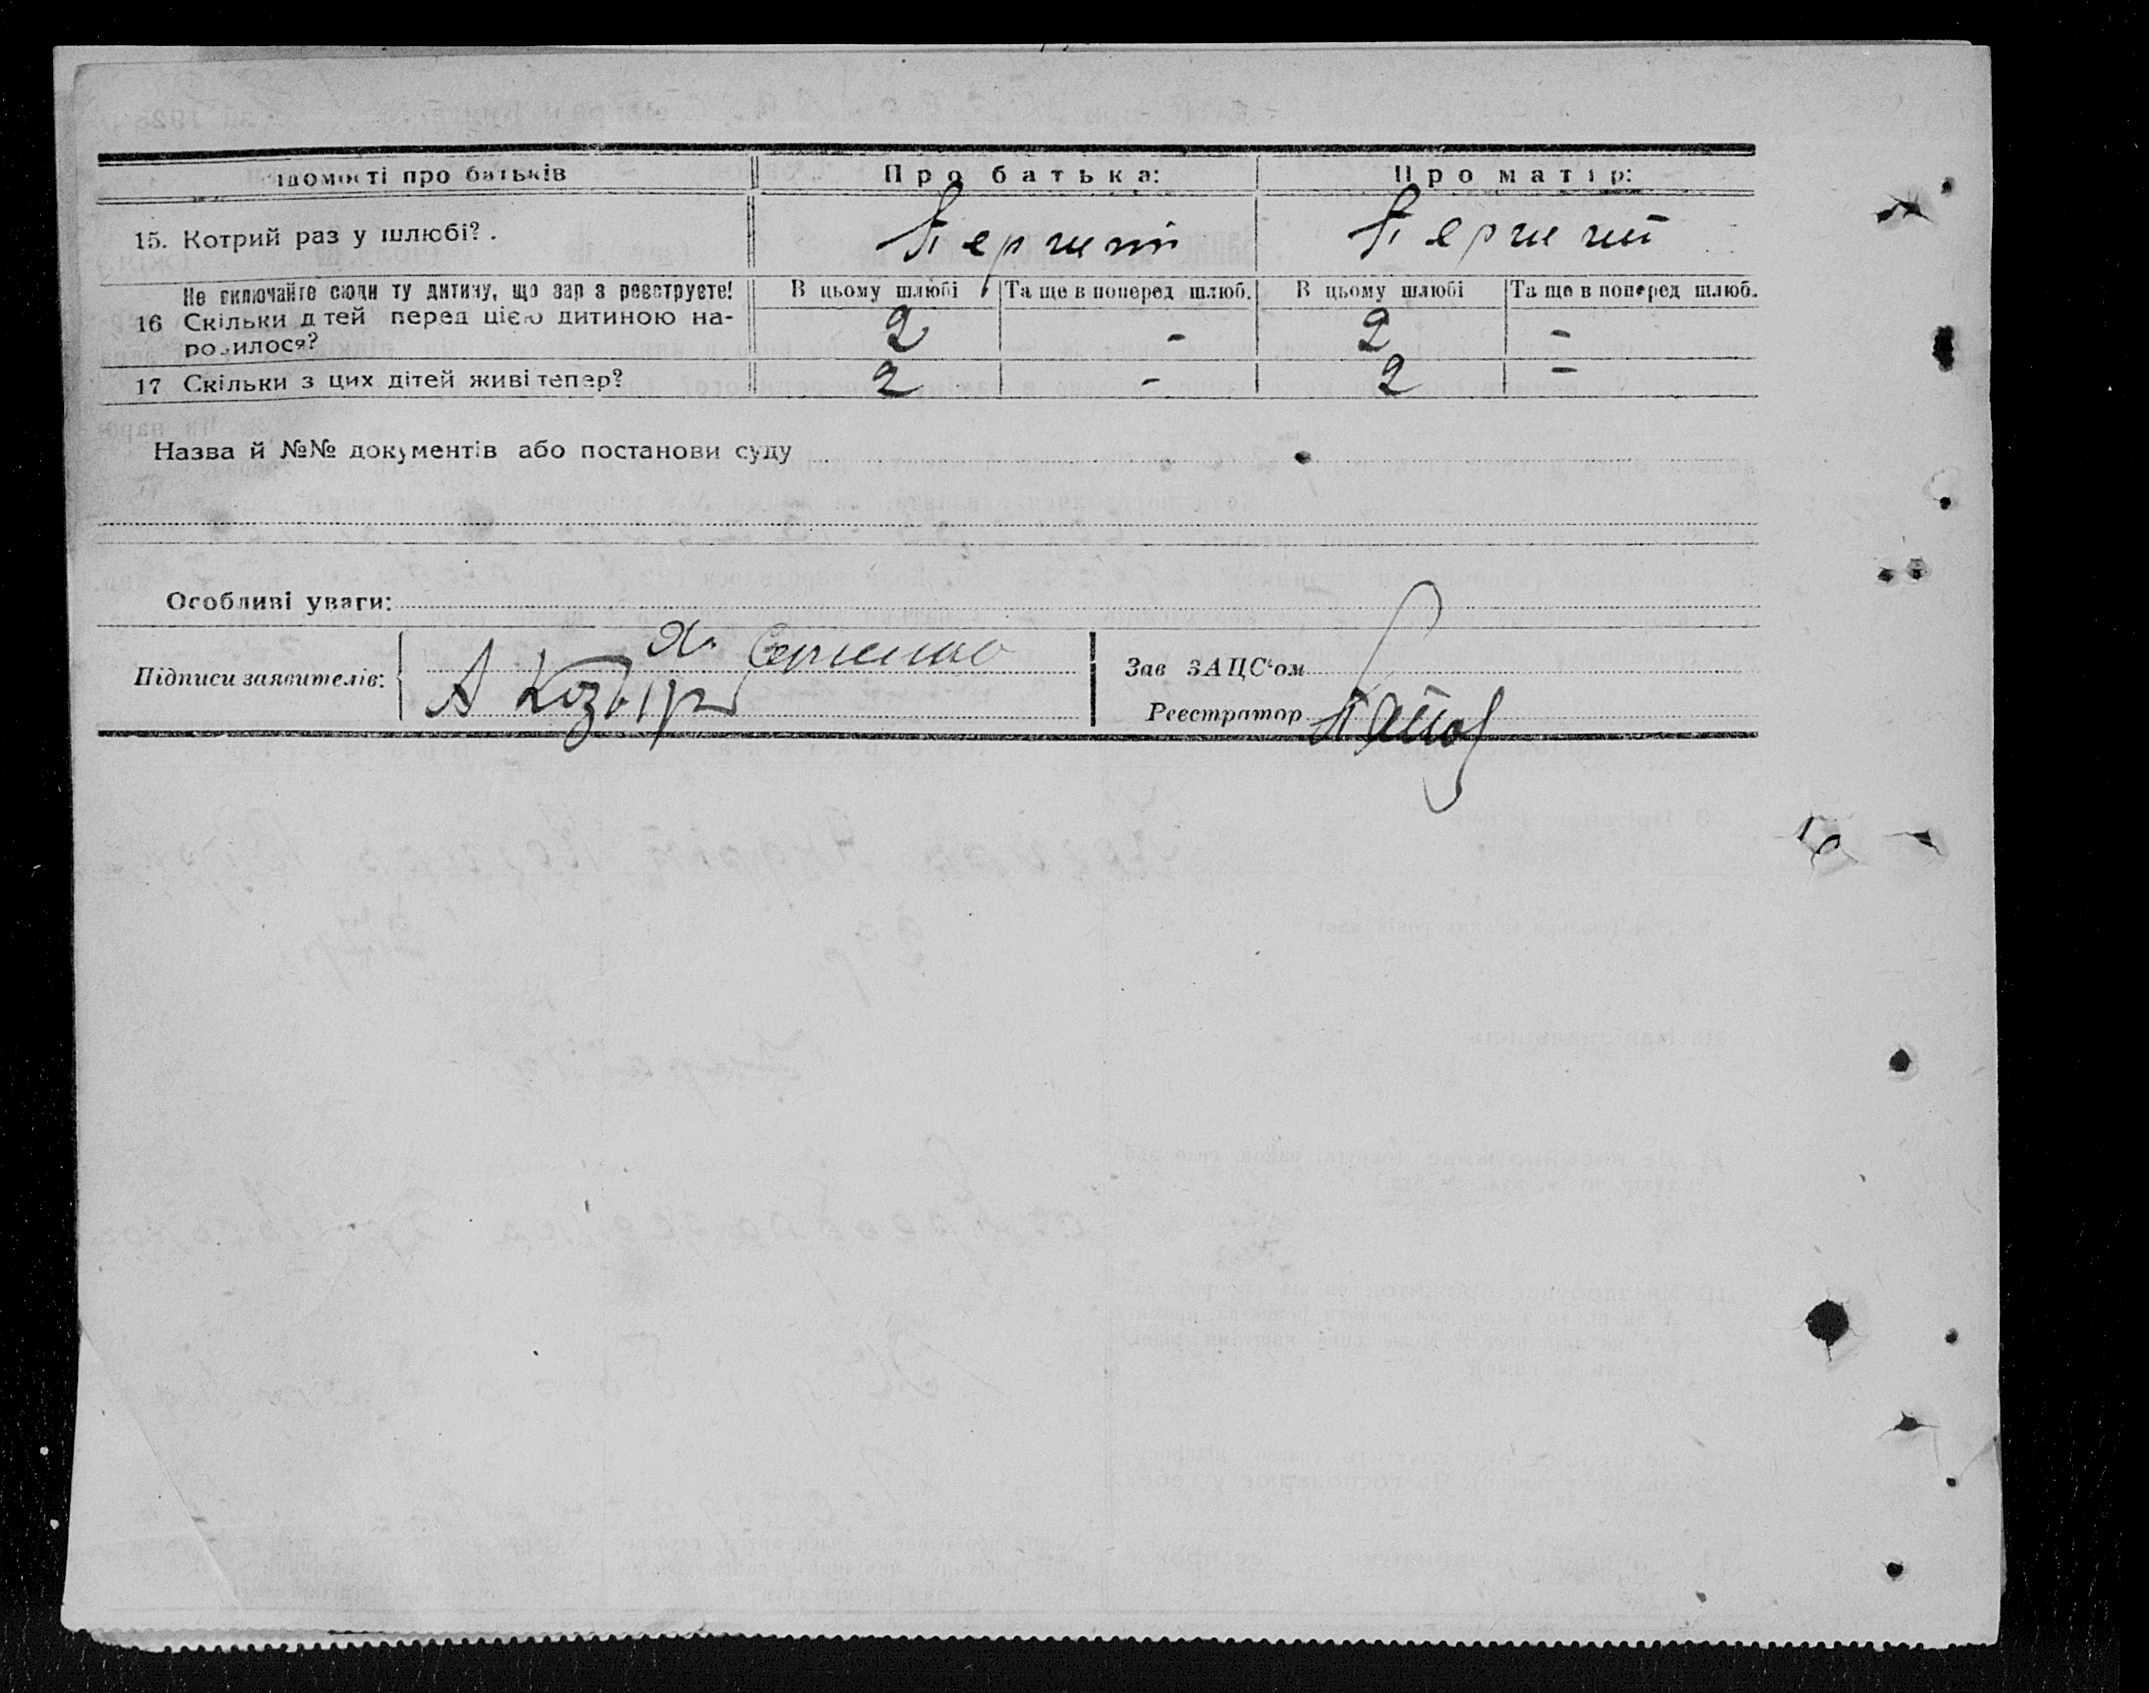 ідомості про батьків Про батька: Про матір:
15. Котрий раз у шлюбі? . Перший Перший
Не включайте сюди ту дитину, що зар з реєструєте! В цьому шлюбі Та ще в поперед шлюб. В цьому шлюбі Та ще в поперед шлюб.
16 Скільки д тей перед цією дитиною на- 2 - 2 -
родилося?
17 Скільки з цих дітей живі тепер? 2 - 2 -
Назва й №№ документів або постанови суду
Особливі уваги:
Підписи заявителів: А Козыр
Зав ЗАЦС'ом
Реєстратор